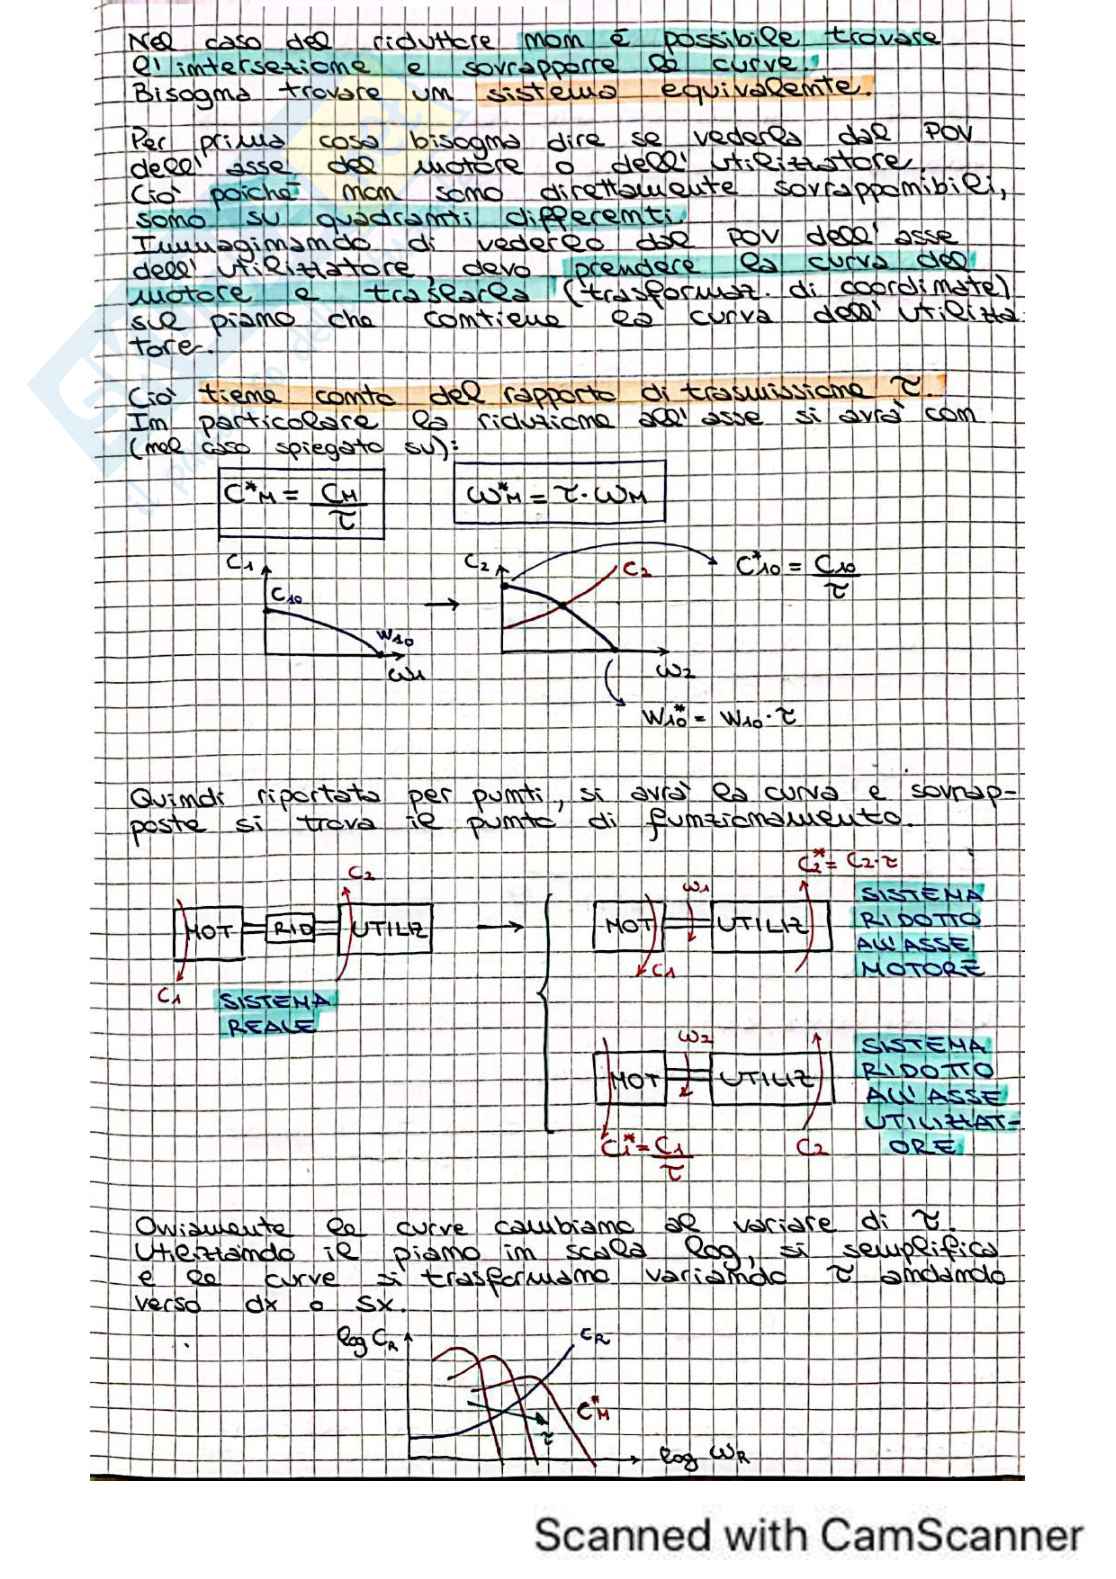 Nel caso del riduttore non è possibile trovare
l'intersezione e sovrapporre le curve.
Bisogna trovare un sistema equivalente.
Per prima cosa bisogna dire se vederla dal POV
dell'asse del motore o dell'utilizzatore.
Ciò poiché non sono direttamente sovrapponibili,
sono su quadranti differenti.
Immaginando di vederlo dal POV dell'asse
dell'utilizzatore, devo prendere la curva del
motore e traslarla (trasformaz. di coordinate)
sul piano che contiene la curva dell'utilizza
tore.
Ciò tiene conto del rapporto di trasmissione τ.
In particolare la riduzione all'asse si avrà con
(nel caso spiegato su):
C*M = CM/τ
ω*M = τ·ωM
C1
C10
W10
ω1
C2
C2
C*10 = C10/τ
ω2
W10* = W10·τ
Quindi riportata per punti, si avrà la curva e sovrap-
poste si trova il punto di funzionamento.
C2
MOT
RID
UTILIZ
C1
SISTEMA
REALE
C2* = C2·τ
ω1
MOT
UTILIZ
C1
SISTEMA
RIDOTTO
ALL'ASSE
MOTORE
ω2
MOT
UTILIZ
C1* = C1/τ
C2
SISTEMA
RIDOTTO
ALL'ASSE
UTILIZZAT-
ORE
Ovviamente le curve cambiano al variare di τ.
Utilizzando il piano in scala log, si semplifica
e le curve si trasformano variando τ andando
verso dx o sx.
log CR
CR
C*M
τ
log ωR
Scanned with CamScanner